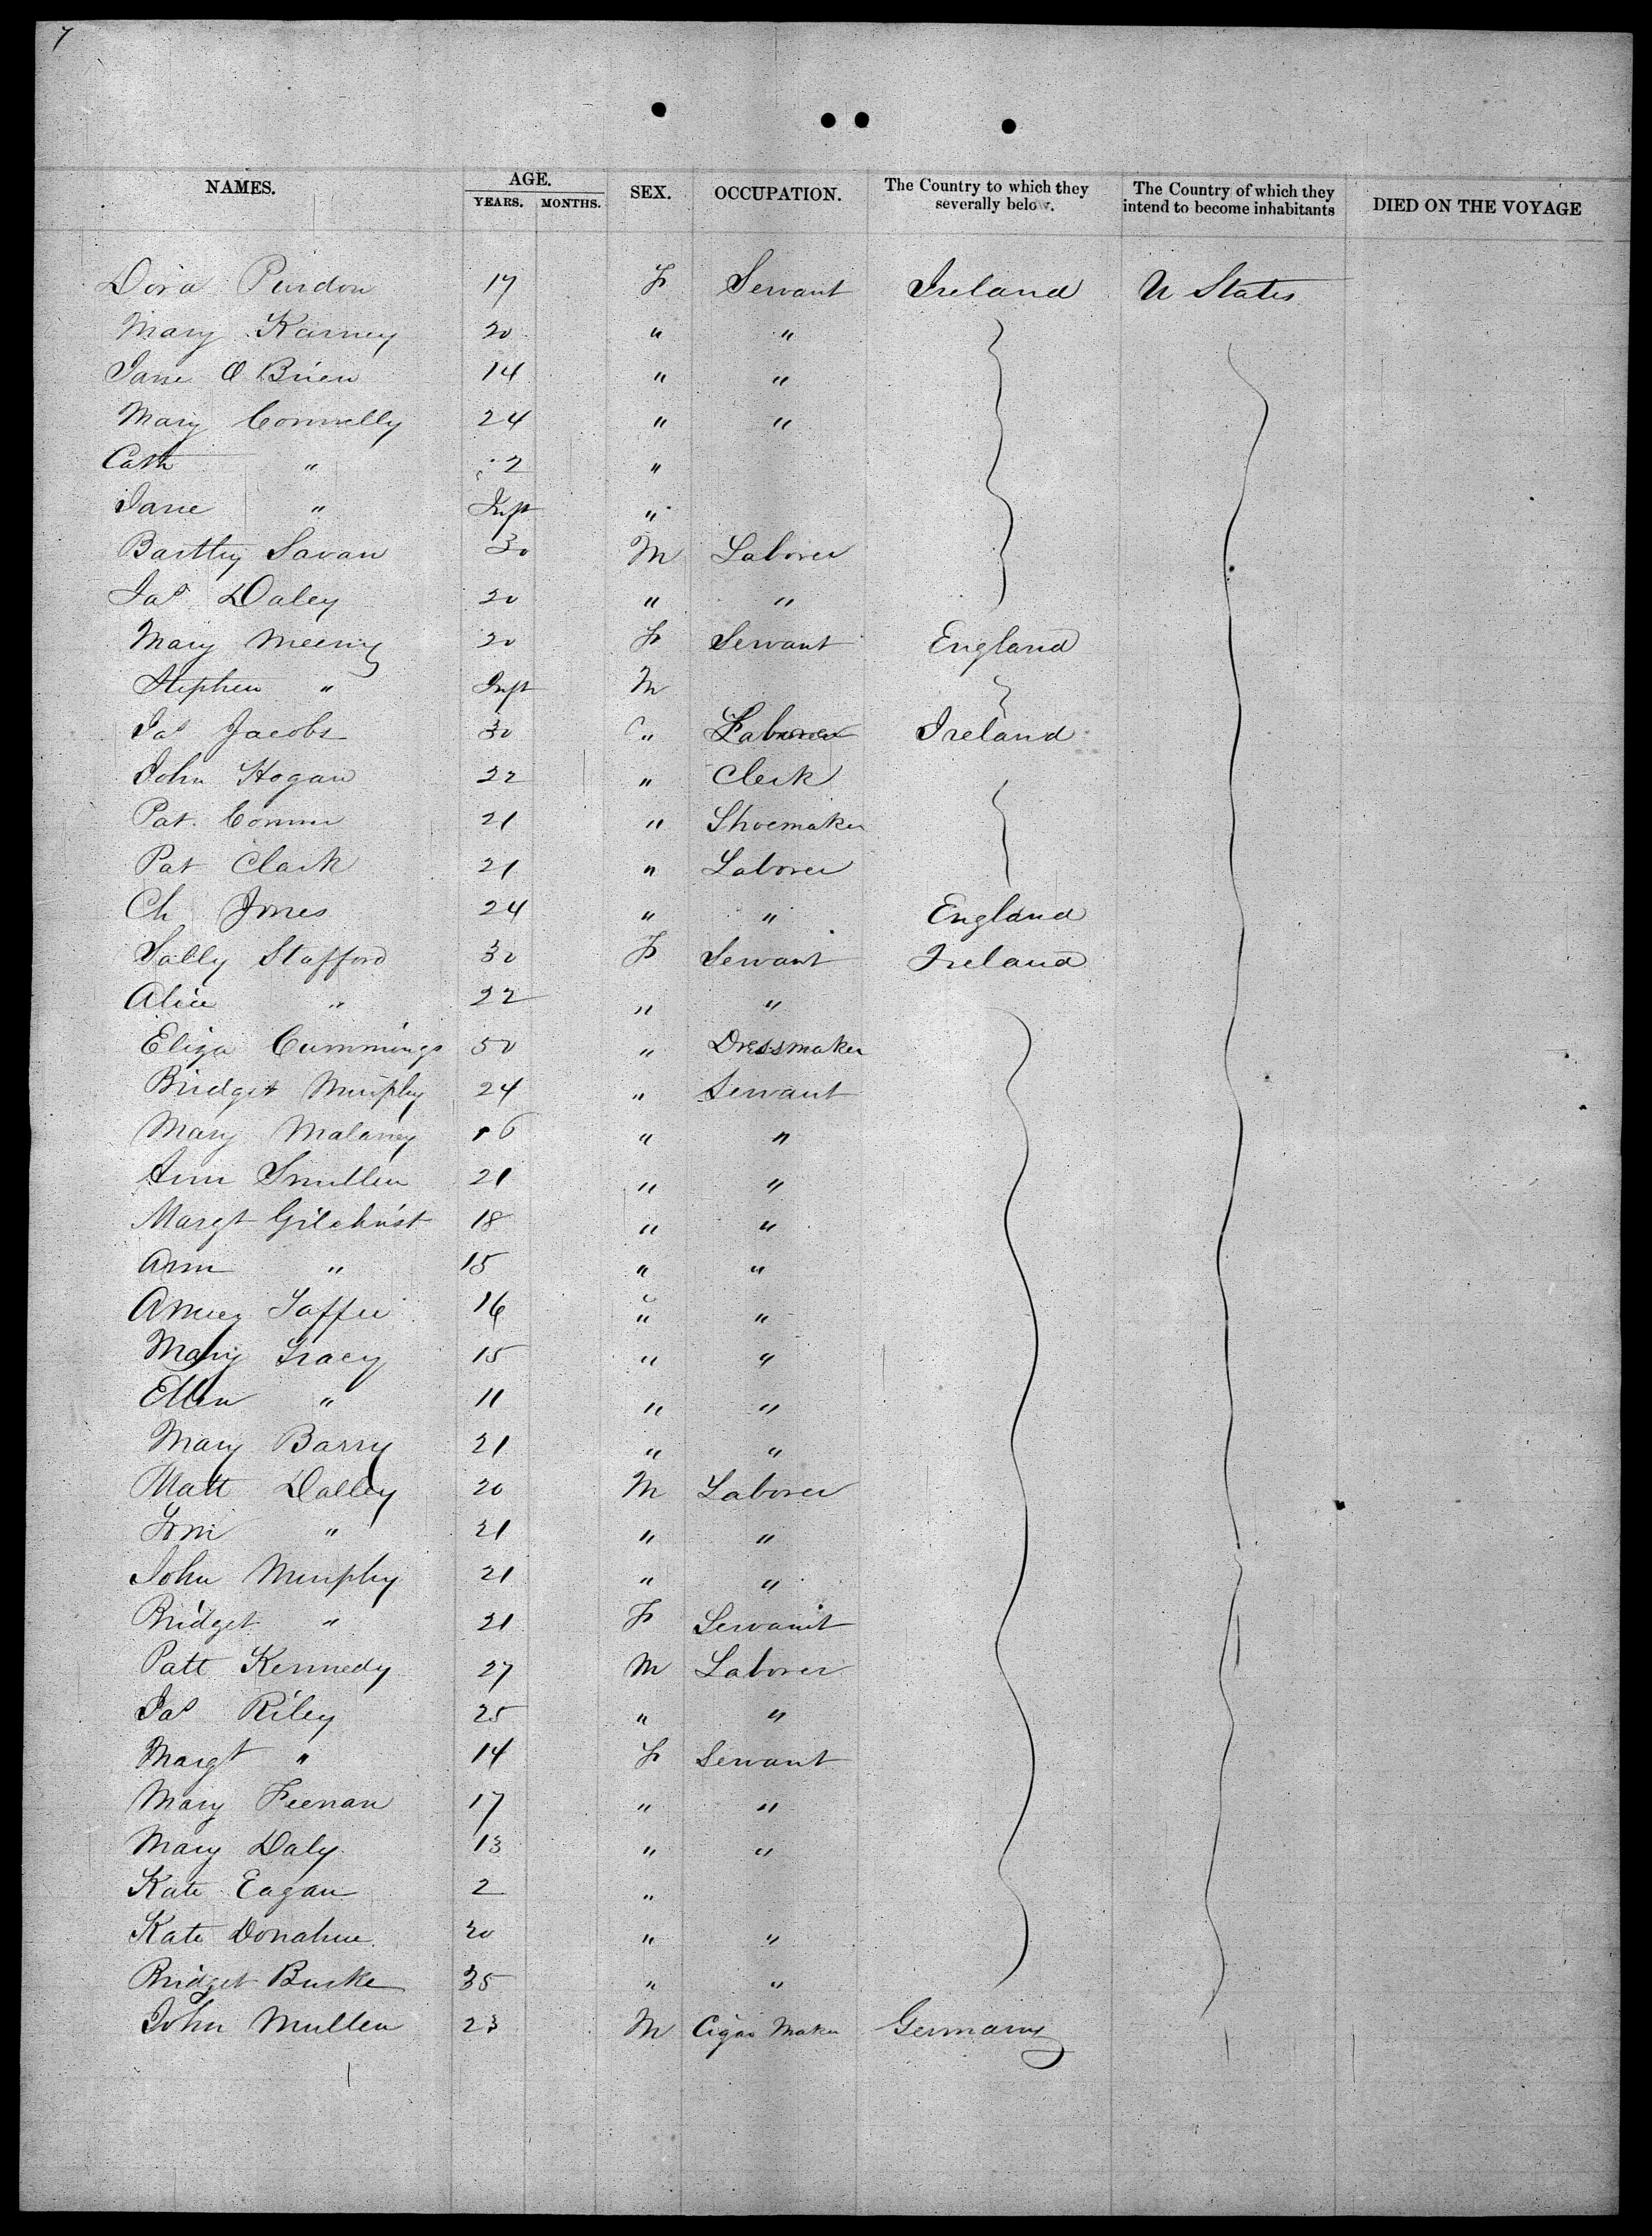 7
NAMES. AGE. YEARS. MONTHS. SEX. OCCUPATION. The Country to which they severally belo . The Country of which they intend to become inhabitants DIED ON THE VOYAGE
Dora Purdon 17 F Servant Ireland U States
Mary Karney 20 " "
Jane O Brien 14 " "
Mary Connelly 24 " "
Cath " 2 "
Jane " Inft "
Bartley Savan 30 M Laborer
Jas Daley 20 " "
Mary Meeny 20 F Servant England
Stephen " Inft M
Jas Jacobs 30 " Laborer Ireland
John Hogan 22 " Clerk
Pat. Connor 21 " Shoemaker
Pat Clark 21 " Laborer
Ch Jones 24 " " England
Sally Stafford 30 F Servant Ireland
Alice " 22 " "
Eliza Cummings 50 " Dressmaker
Bridget Murphy 24 " Servant
Mary Malaney 16 " "
Ann Smullen 21 " "
Margt Gilchrist 18 " "
Ann " 15 " "
Taffee 16 " "
Mary Tracy 15 " "
Ellen " 11 " "
Mary Barry 21 " "
Matt Dalley 20 M Laborer
" 21 " "
John Murphy 21 " "
Bridget " 21 F Servant
Patt Kennedy 27 M Laborer
Jas Riley 25 " "
Margt " 14 F Servant
Mary Feenan 17 " "
Mary Daly 13 " "
Kate Eagan 2 "
Kate Donahue 20 " "
Bridget Burke 35 " "
John Mullen 23 M Cigar Maker Germany